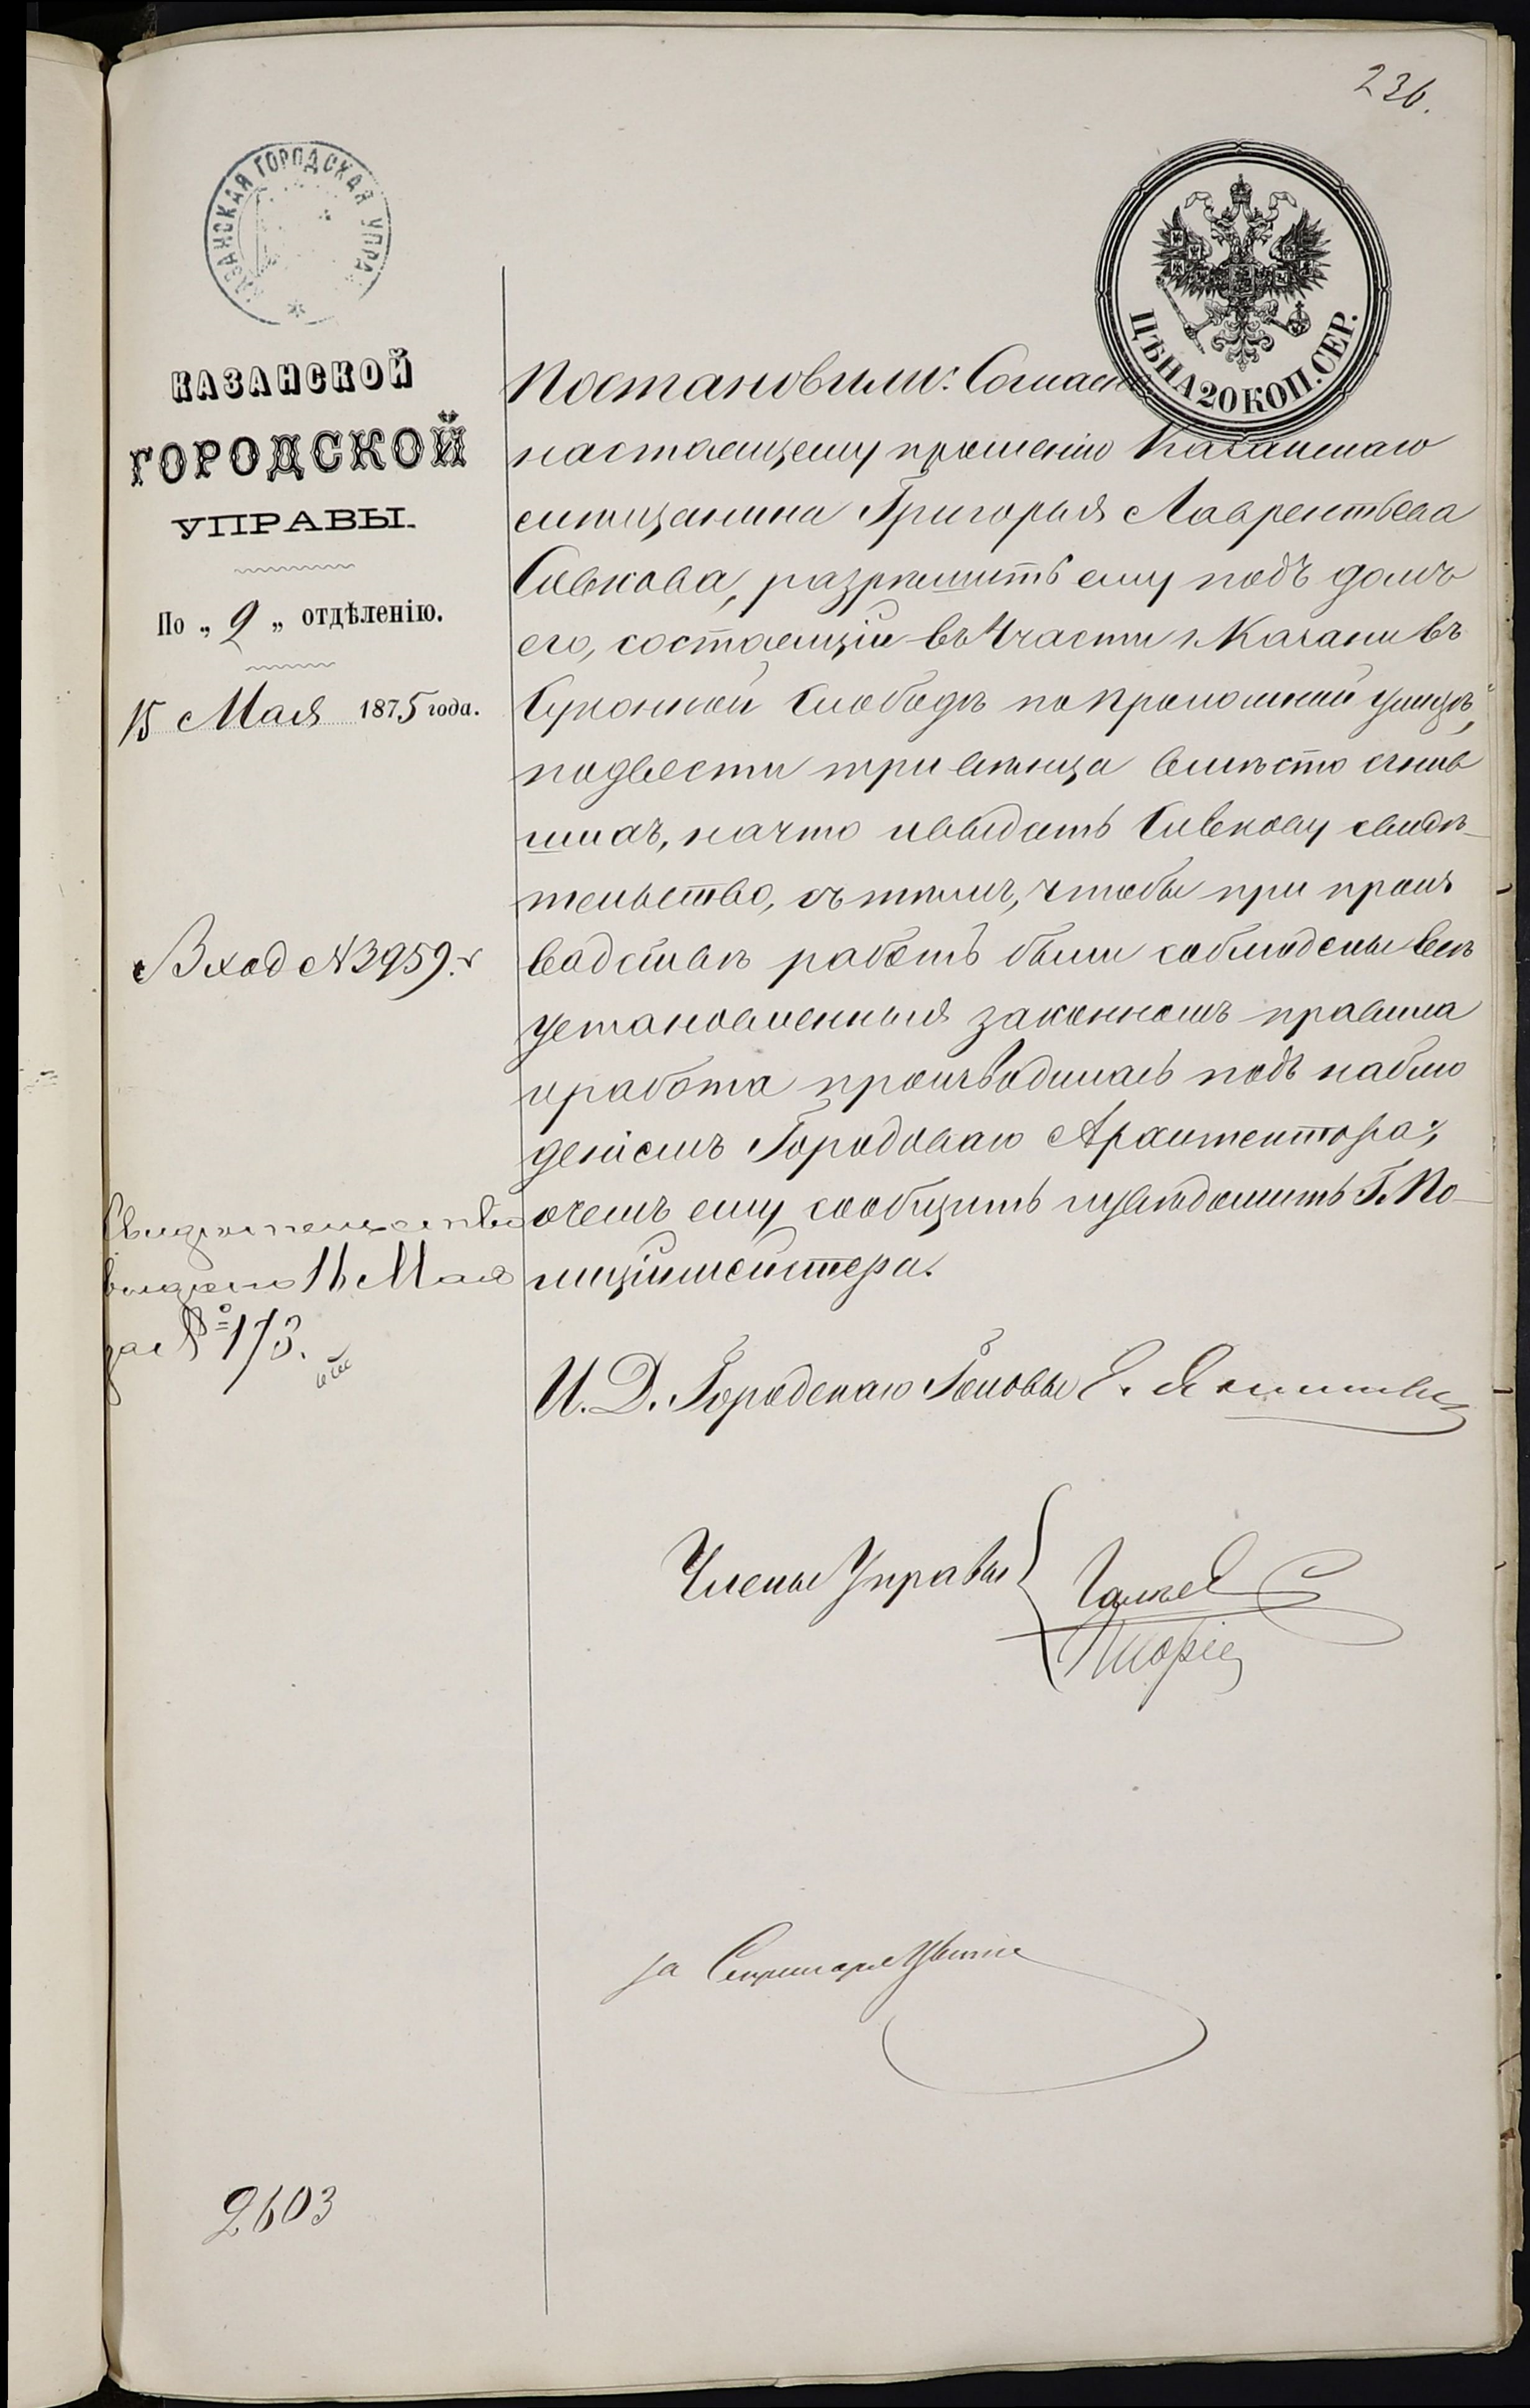 236.
КАЗАНСКАЯ ГОРОДСКАЯ УПРА
ЦѢНА 20 КОП. СЕР.
КАЗАНСКОЙ
ГОРОДСКОЙ
УПРАВЫ.
По „ 2 „ отдѣленію.
15 Мая 1875 года.
Вход № 3959.
Свидѣтельство
выдано 16 Мая
за № 173.
Постановили: Согласно
настоящему прошенію Казанскаго
мѣщанина Григорья Лаврентьева
Сивкова, разрѣшить ему подъ домъ
его, состоящій въ 4 части г. Казани въ
Суконной Слободѣ по Проломной улицѣ,
подвести три венца вмѣсто сгнив
шихъ, на что и выдать Сивкову свидѣ-
тельство, съ тѣмъ, чтобы при произ
водствѣ работъ были соблюдены всѣ
установленныя закономъ правила
и работа производилась подъ наблю
деніемъ Городоваго Архитектора,
о чемъ ему сообщить и увѣдомить Г. По-
лиціймейстера.
И. Д. Городскаго Головы Е.
Члены Управы
за Секретаря
2603